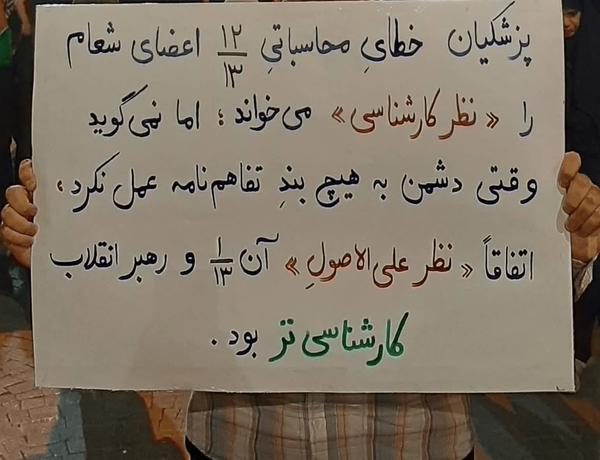 پزشکیان خطایِ محاسباتیِ ۱۲/۱۳ اعضای شعام
را «نظر کارشناسی» می‌خواند؛ اما نمی‌گوید
وقتی دشمن به هیچ بندِ تفاهم‌نامه عمل نکرد،
اتفاقاً «نظر علی‌الاصولِ» آن ۱/۱۳ و رهبر انقلاب
کارشناسی‌تر بود.